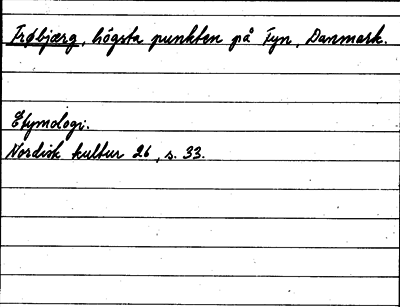 Frøbjærg, högsta punkten på Fyn, Danmark.
Etymologi.
Nordisk kultur 26, s. 33.